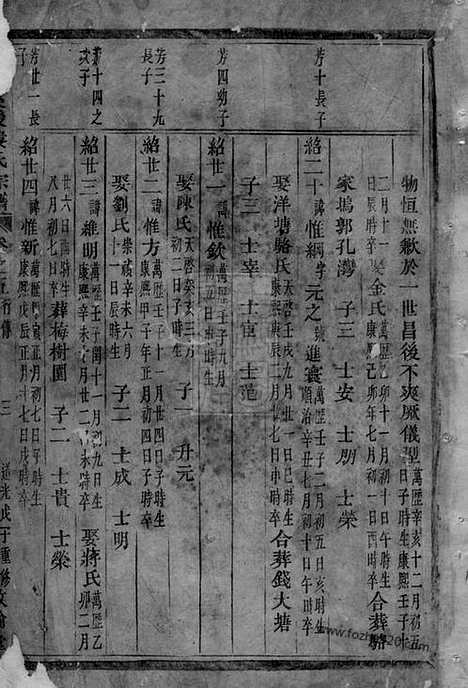 物恒無歉於一世昌後不爽厥儀型
萬歷辛亥十二月初五
日子時生康熙壬子十
二月十一
日辰時卒
娶金氏
萬歷乙卯十一月初十日午時生
康熙己卯年七月初一日酉時卒
合葬駱
家塢郭孔灣 子三 士安 士朋 士榮
芳十長子
紹二十
諱惟綱字元之號進寰
萬歷壬子二月初五日亥時生
順治辛丑七月初十日午時卒
娶洋塘駱氏
天啓壬戌九月十一日巳時生
康熙 辰二月初七日申時卒
合葬錢大塘
子三 士宰 士官 士范
芳四幼子
紹世一
諱惟欽
萬歷壬子九月
初五日 時生
娶陳氏
天啓癸亥三月
初二日子時生
子一 升元
芳三十九
長子
紹世二
諱惟方
萬歷壬子十一月廿四日子時生
康熙甲子年正月初六日子時卒
娶劉氏
崇禎辛未六月
十日辰時生
子二 士成 士明
蕭十四之
次子
紹世三
諱維明
萬歷壬子閏十一月初九日生
康熙辛未 月廿二 時卒
娶蔣氏
萬歷乙
卯二月
廿六日酉時生
八月初七日時卒
葬梅樹園 子二 士貴 士榮
芳世一長
子
紹世四
諱惟新
萬歷 寅正月初七日戌時生
康熙戊辰正月十七日戌時卒
氏宗譜 卷之五行傳 三 道光戊子重修
www.fozhu920.com